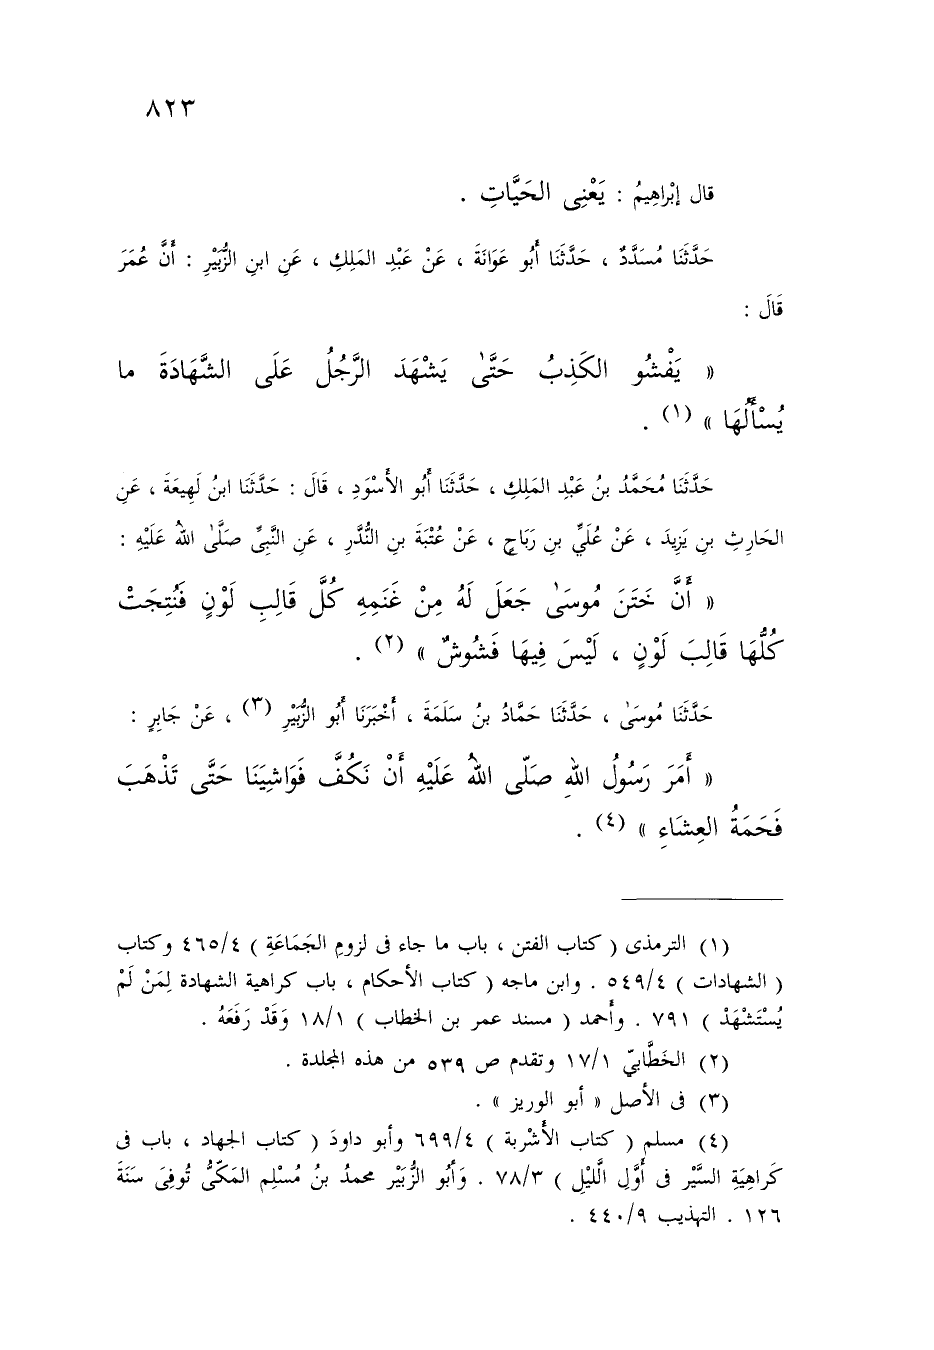 ٨٢٣
قال إبْراهِيمُ : يَعْنِى الحَيَّاتِ .
حَدَّثَنَا مُسَدَّدٌ ، حَدَّثَنَا أَبُو عَوَانَةَ ، عَنْ عَبْدِ المَلِكِ ، عَنِ ابنِ الزُّبَيْرِ : أَنَّ عُمَرَ
قَالَ :
« يَفْشُو الكَذِبُ حَتَّىٰ يَشْهَدَ الرَّجُلُ عَلَى الشَّهَادَةَ ما
يُسْأَلُهَا » (١) .
حَدَّثَنَا مُحَمَّدُ بنُ عَبْدِ المَلِكِ ، حَدَّثَنَا أَبُو الأَسْوَدِ ، قَالَ : حَدَّثَنَا ابنُ لَهِيعَةَ ، عَنِ
الحَارِثِ بنِ يَزِيدَ ، عَنْ عُلَيِّ بنِ رَبَاحٍ ، عَنْ عُتْبَةَ بنِ النُّدَّرِ ، عَنِ النَّبِىِّ صَلَّىٰ اللهُ عَلَيْهِ :
« أَنَّ خَتَنَ مُوسَىٰ جَعَلَ لَهُ مِنْ غَنَمِهِ كُلَّ قَالِبِ لَوْنٍ فَنُتِجَتْ
كُلُّهَا قَالِبَ لَوْنٍ ، لَيْسَ فِيهَا فَشُوشٌ » (٢) .
حَدَّثَنَا مُوسَىٰ ، حَدَّثَنَا حَمَّادُ بنُ سَلَمَةَ ، أَخْبَرَنَا أَبُو الزُّبَيْرِ (٣) ، عَنْ جَابِرٍ :
« أَمَرَ رَسُولُ اللهِ صَلّى اللهُ عَلَيْهِ أَنْ نَكُفَّ فَوَاشِيَنَا حَتَّى تَذْهَبَ
فَحَمَةُ العِشَاءِ » (٤) .
(١) الترمذى ( كتاب الفتن ، باب ما جاء فى لزوم الجَمَاعَةِ ) ٤٦٥/٤ وكتاب
( الشهادات ) ٥٤٩/٤ . وابن ماجه ( كتاب الأحكام ، باب كراهية الشهادة لِمَنْ لَمْ
يُسْتَشْهَدْ ) ٧٩١ . وأحمد ( مسند عمر بن الخطاب ) ١٨/١ وَقَدْ رَفَعَهُ .
(٢) الخَطَّابيّ ١٧/١ وتقدم ص ٥٣٩ من هذه المجلدة .
(٣) فى الأصل « أبو الوريز » .
(٤) مسلم ( كتاب الأَشْربة ) ٦٩٩/٤ وأبو داودَ ( كتاب الجهاد ، باب فى
كَراهِيَةِ السَّيْر فى أَوَّلِ الَّليْلِ ) ٧٨/٣ . وَأَبُو الزُّبَيْر محمدُ بنُ مُسْلِم المَكّىُّ تُوفِىَ سَنَةَ
١٢٦ . التهذيب ٤٤٠/٩ .